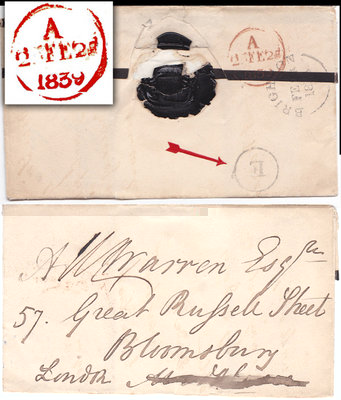 A
2 FE 2
1839
A
2 FE 2
BRIGH
E
A W Warren Esqre
57. Great Russell Street
Bloomsbury
London